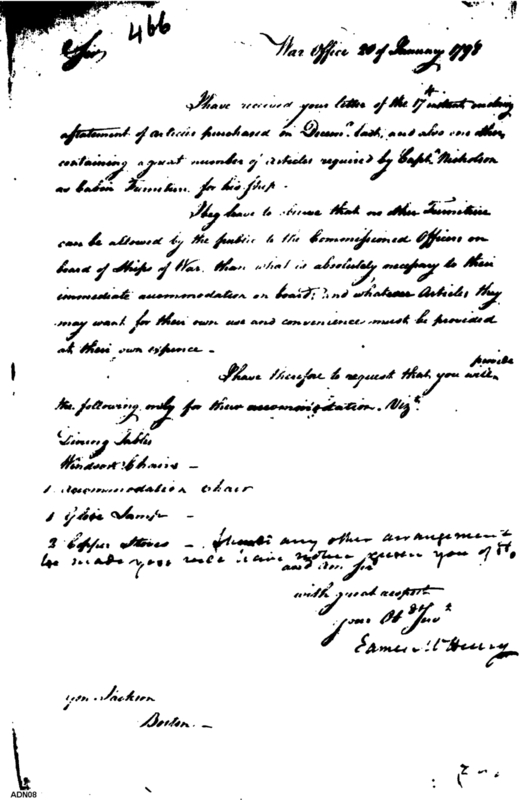 466
Sir
War Office 20 of January 1798
I have received your letter of the 17th instant making
a statement of articles purchased on Decem.r last, and also one other
containing a great number of articles required by Capt.n Nicholson
as Cabin Furniture for his Ship.
I beg leave to observe that no other Furniture
can be allowed by the public to the Commissioned Officers on
board of Ships of War, than what is absolutely necessary to their
immediate accommodation on board; and whatever Articles they
may want for their own use and convenience must be provided
at their own expence.
I have therefore to request that you will provide
the following only for their accommodation. Viz.t
Dining Tables
Windsor Chairs
1 accommodation chair
1 Globe Lamp
2 Copper Stoves — Should any other arrangement
be made you will have notice given you of it.
and am Sir
with great respect
your Ob.d Serv.t
James McHenry
Jackson
Boston.
ADN08